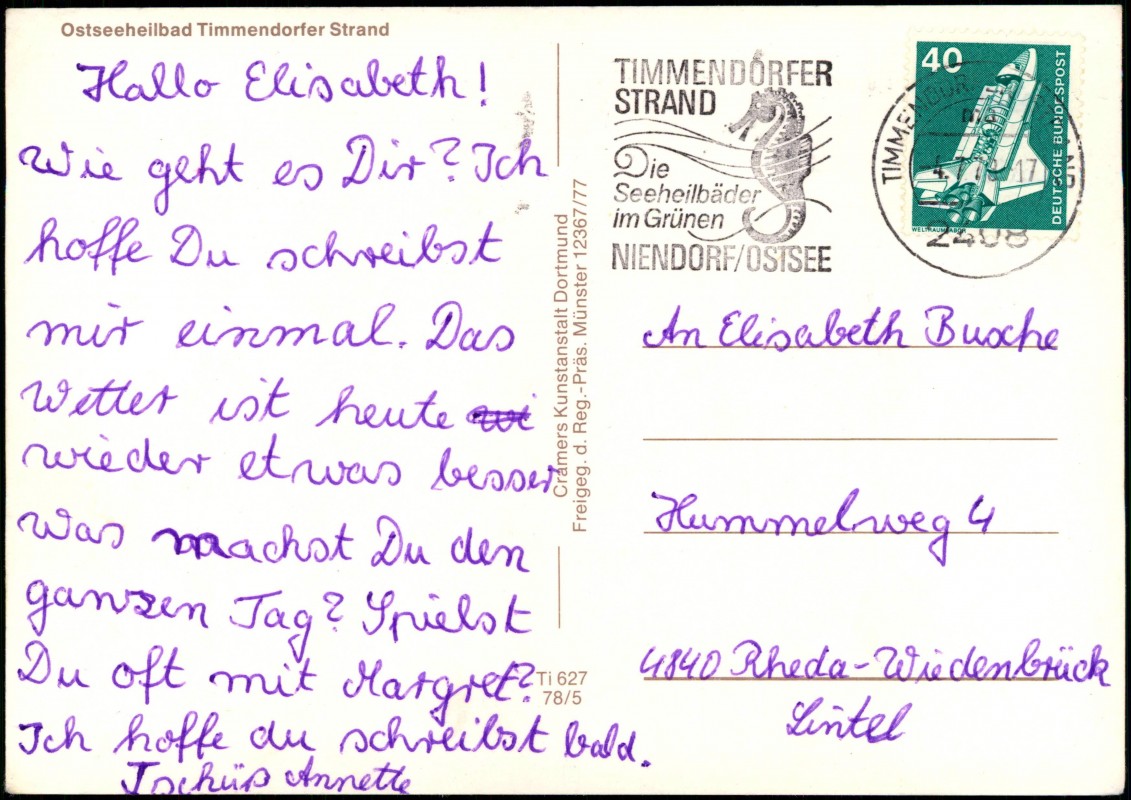 Ostseeheilbad Timmendorfer Strand
Hallo Elisabeth!
Wie geht es Dir? Ich
hoffe Du schreibst
mir einmal. Das
Wetter ist heute wi
wieder etwas besser
Was machst Du den
ganzen Tag? Spielst
Du oft mit Margret?
Ich hoffe du schreibst bald.
Tschüß Annette
Cramers Kunstanstalt Dortmund
Freigeg. d. Reg.-Präs. Münster 12367/77
Ti 627
78/5
TIMMENDORFER
STRAND
Die
Seeheilbäder
im Grünen
NIENDORF/OSTSEE
40
DEUTSCHE BUNDESPOST
WELTRAUMLABOR
TIMMENDORFER STRAND
2408
An Elisabeth Busche
Hummelweg 4
4840 Rheda-Wiedenbrück
Lintel